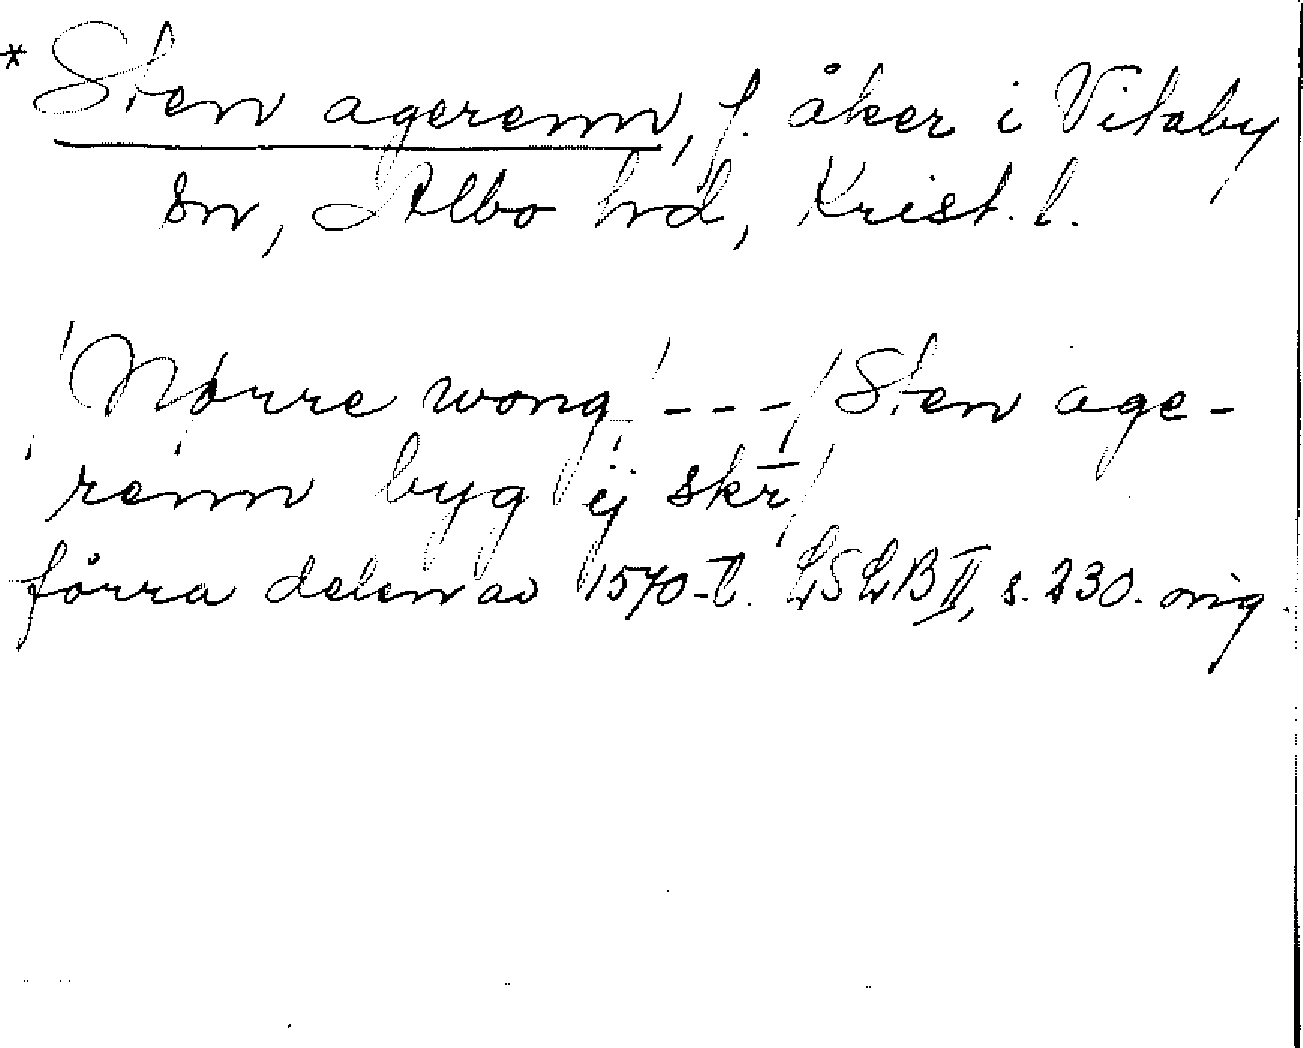 * Sten agerenn, f. åker i Vitaby
sn, Albo hrd, Krist. l.
/Nørre wong/ - - - /Sten age-
renn byg ij skr̄/
förra delen av 1570-t. LSLB II, s. 230. orig.